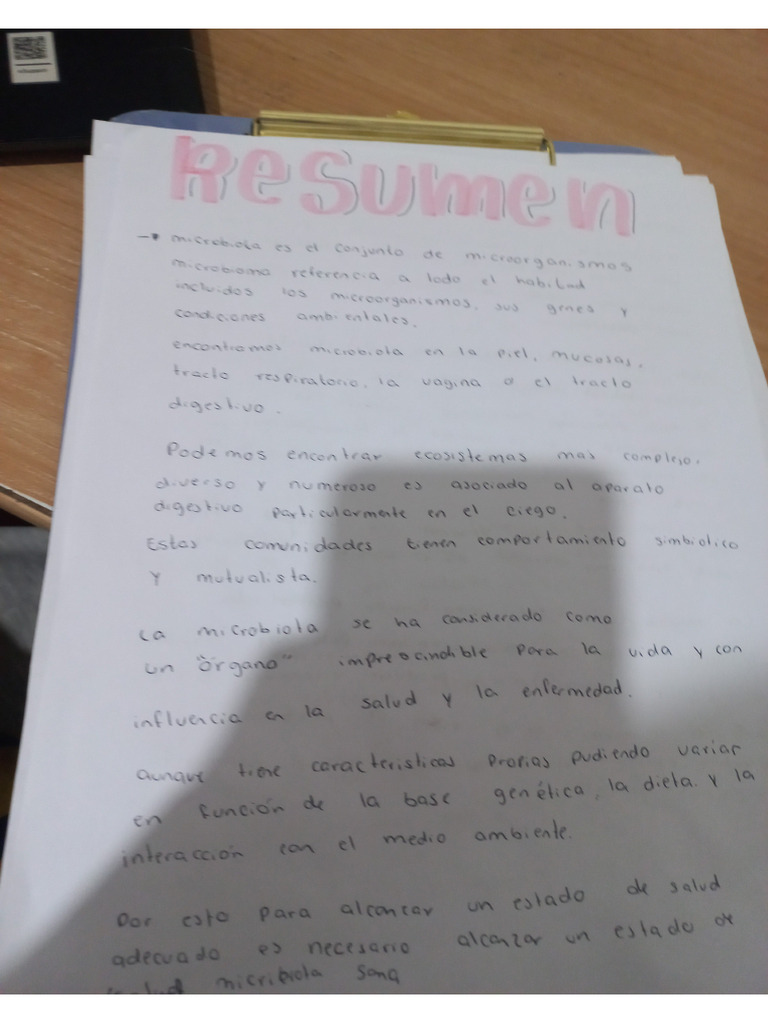 Resumen
→ microbiota es el conjunto de microorganismos
microbioma referencia a todo el habitad
incluidos los microorganismos, sus genes y
condiciones ambientales.
encontramos microbiota en la piel, mucosas,
tracto respiratorio, la vagina o el tracto
digestivo.
Podemos encontrar ecosistemas mas complejo.
diverso y numeroso es asociado al aparato
digestivo particularmente en el ciego.
Estas comunidades tienen comportamiento simbiotico
y mutualista.
La microbiota se ha considerado como
un "órgano" imprescindible para la vida y con
influencia en la salud y la enfermedad.
aunque tiene caracteristicas propias pudiendo variar
en función de la base genética, la dieta y la
interacción con el medio ambiente.
Por esto para alcanzar un estado de salud
adecuado es necesario alcanzar un estado de
micribiota sana